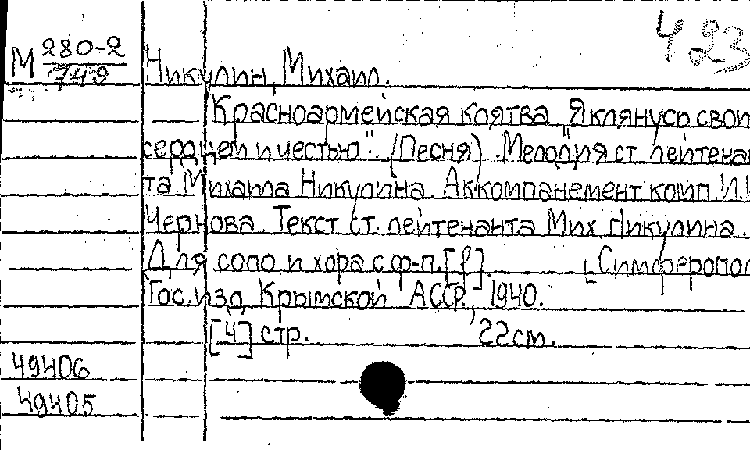 4 23
М 280-2
749
Никулин, Михаил.
Красноармейская клятва "Я клянусь свои
сердцем и честью". (Песня). Мелодия ст. лейтенан
та Михаила Никулина. Аккомпанемент комп. И.И.
Чернова. Текст ст. лейтенанта Мих. Никулина.
Для соло и хора с ф-п. [f]. [Симферопол
Гос. изд. Крымской АССР, 1940.
[4] стр. 22 см.
49406
49405